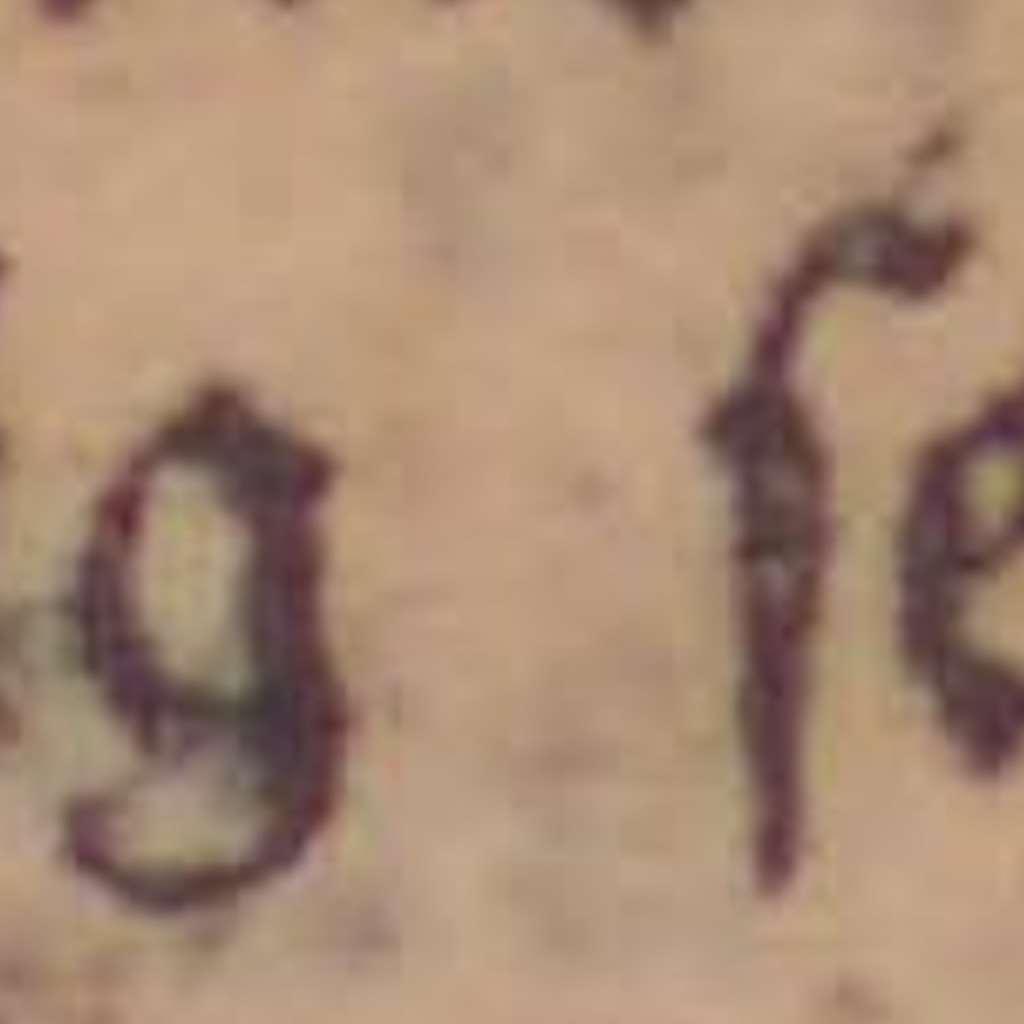 g ſe